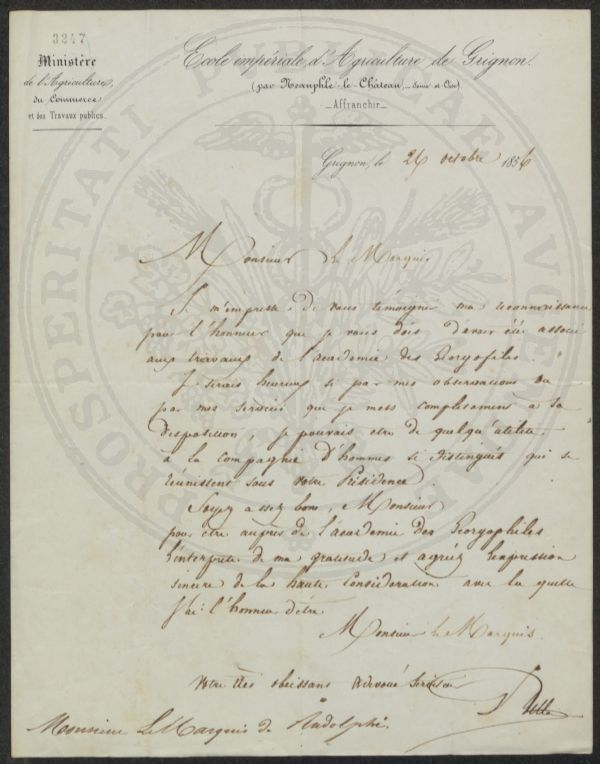 3247
Ministère
de l'Agriculture,
du Commerce
et des Travaux publics.
Ecole impériale d'Agriculture de Grignon.
(par Neauphle-le-Château, Seine et Oise)
Affranchir
Grignon, le 26 octobre 1856
Monsieur le Marquis
Je m'empresse de vous témoigner ma reconnoissance
pour l'honneur que je vous dois d'avoir été associé
aux travaux de l'academie des Georgofiles.
Je serais heureux si par mes observations ou
par mes services que je mets complètement a sa
disposition, je pouvais etre de quelqu'utilité
à la compagnie d'hommes si distingués qui se
réunissent sous votre Présidence.
Soyez assez bon, Monsieur
pour etre auprès de l'académie des Georgophiles
l'interprete de ma gratitude et agreez l'expression
sincere de la haute consideration avec la quelle
J'ai l'honneur d'etre
Monsieur le Marquis
Votre très obeissant & devoué Serviteur
Bella
Monsieur Le Marquis de Ridolphi.
PROSPERITATI PUBLICAE AUGENDAE